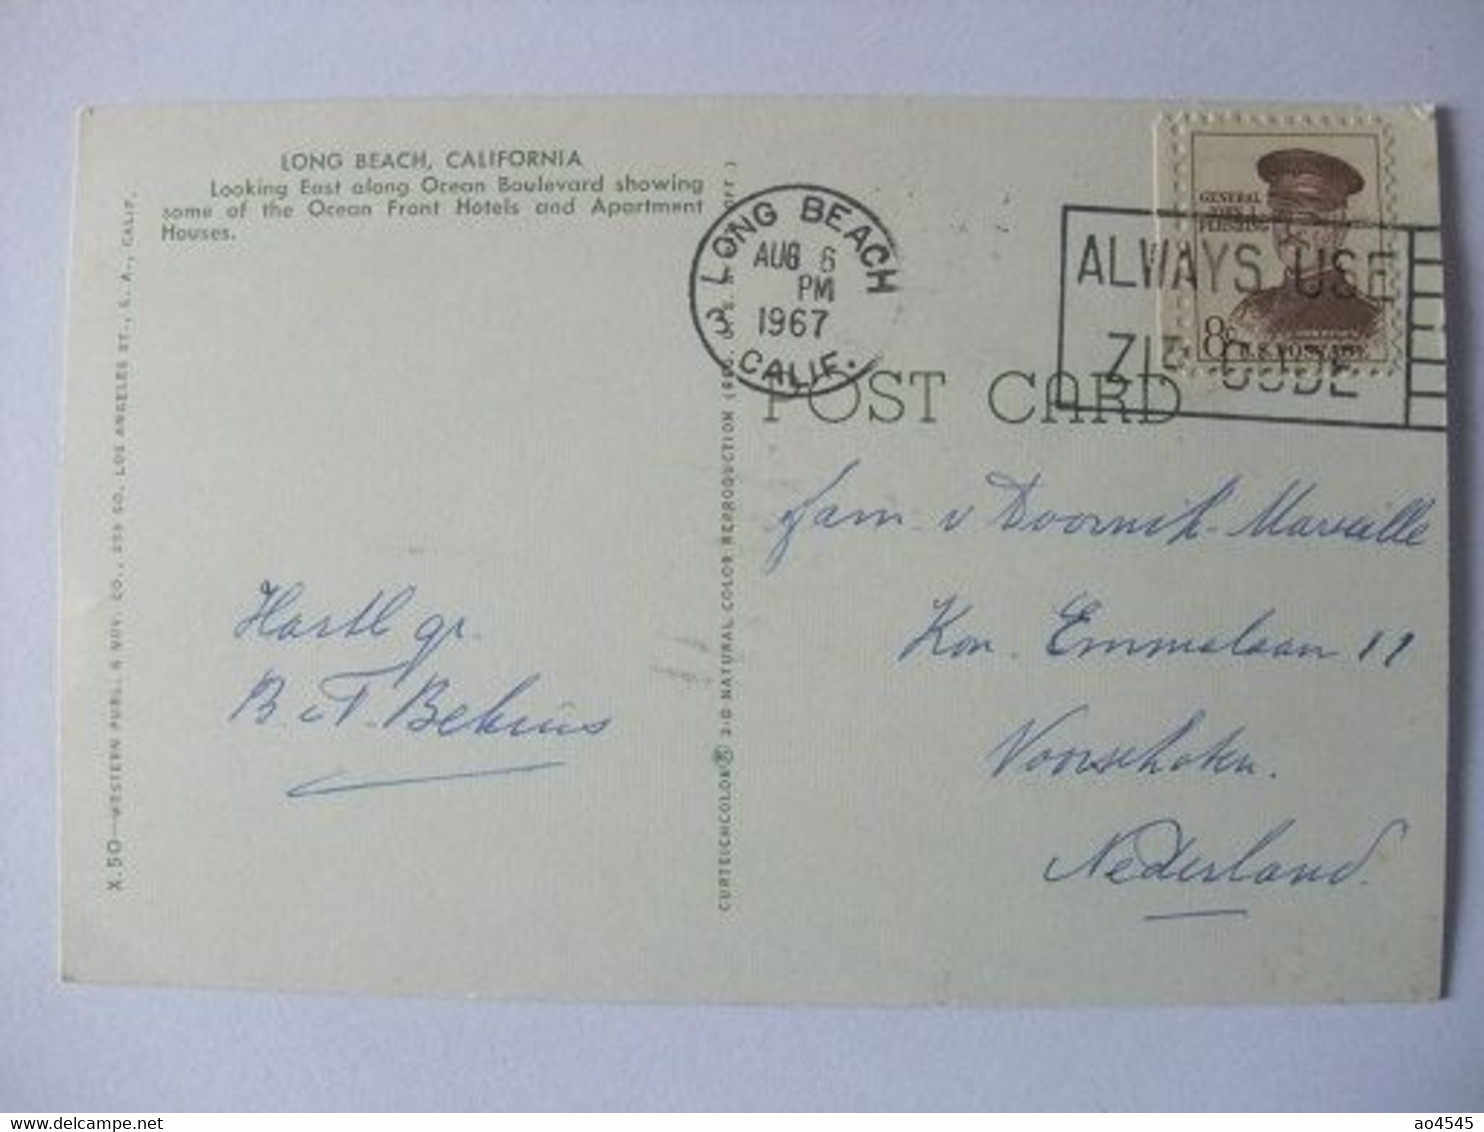 LONG BEACH, CALIFORNIA
Looking East along Ocean Boulevard showing
some of the Ocean Front Hotels and Apartment
Houses.
X.50—WESTERN PUBL. & NOV. CO., 259 SO. LOS ANGELES ST., L. A., CALIF.
CURTEICHCOLOR® 3-D NATURAL COLOR REPRODUCTION (REG. U. S. PAT. OFF.)
LONG BEACH
AUG 6
PM
1967
3 CALIF.
ALWAYS USE
ZIP CODE
GENERAL
JOHN J.
PERSHING
8¢
U.S. POSTAGE
POST CARD
fam. v Doornik-Marveille
Kon. Emmalaan 11
Voorschoten.
Nederland.
Hartl gr.
B v T. Bekius
delcampe.net
ao4545